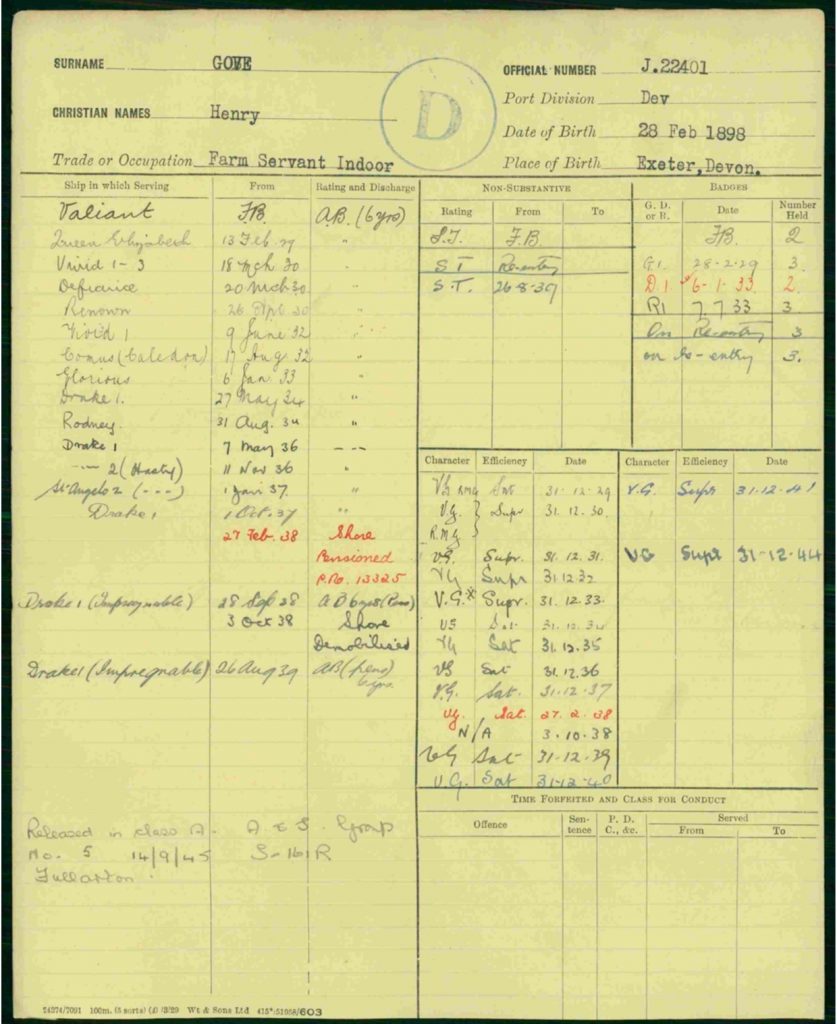 SURNAME GOVE
CHRISTIAN NAMES Henry
Trade or Occupation Farm Servant Indoor
D
OFFICIAL NUMBER J.22401
Port Division Dev
Date of Birth 28 Feb 1898
Place of Birth Exeter,Devon.
Ship in which Serving From Rating and Discharge
Valiant F.B. A.B. (6yrs)
13 Feb 29 "
Vivid 1-3 18 Mch 30
Defiance 20 Mch 30 "
Renown 26 30 "
Vivid 1 9 June 32 "
Comus (Caledon) 17 Aug 32 "
Glorious 6 Jan 33 "
Drake 1. 27 May 34 "
Rodney. 31 Aug. 34 "
Drake 1 7 May 36 - - -
2 (Hasty) 11 Nov 36 "
St Angelo 2 (- - -) 1 Jan 37. "
Drake 1 1 Oct. 37 "
27 Feb. 38 Shore
Pensioned
P.No. 13325
Drake 1 (Impregnable) 28 Sep AB 6yrs (Pens)
3 Oct 38 Shore
Demobilised
Drake 1 (Impregnable) 26 Aug 39 AB (pens)
6yrs.
Released in class A. A & S. Group
No. 5 14/9/45 S-161R
Fullarton.
NON-SUBSTANTIVE
Rating From To
S.T. F.B.
S T Re-entry
S.T. 26-8-39
BADGES
G. D. or R. Date Number Held
F.B. 2
G.1. 28-2-29 3.
D.1 6-1-33. 2.
R1 7.7.33 3
On Re-entry 3
on Re-entry 3.
Character Efficiency Date Character Efficiency Date
VG RMG Sat 31-12-29 V.G. Supr 31.12.41
V.G. Supr 31.12.30.
R.M.G
VG. Supr. 31.12.31. VG Supr 31-12-44
VG Supr 31.12.32
V.G.* Supr. 31.12.33.
VG Sat. 31.12.34
VG Sat 31.12.35
VG Sat 31.12.36
V.G. Sat. 31-12-37
VG. Sat. 27.2.38
N/A 3-10-38
VG Sat 31-12-39
V.G. Sat 31-12-40
TIME FORFEITED AND CLASS FOR CONDUCT
Offence Sentence P. D. C., &c. Served
From To
74274/7091 100m. (5 sorts) (D/3/29 Wt & Sons Ltd 603